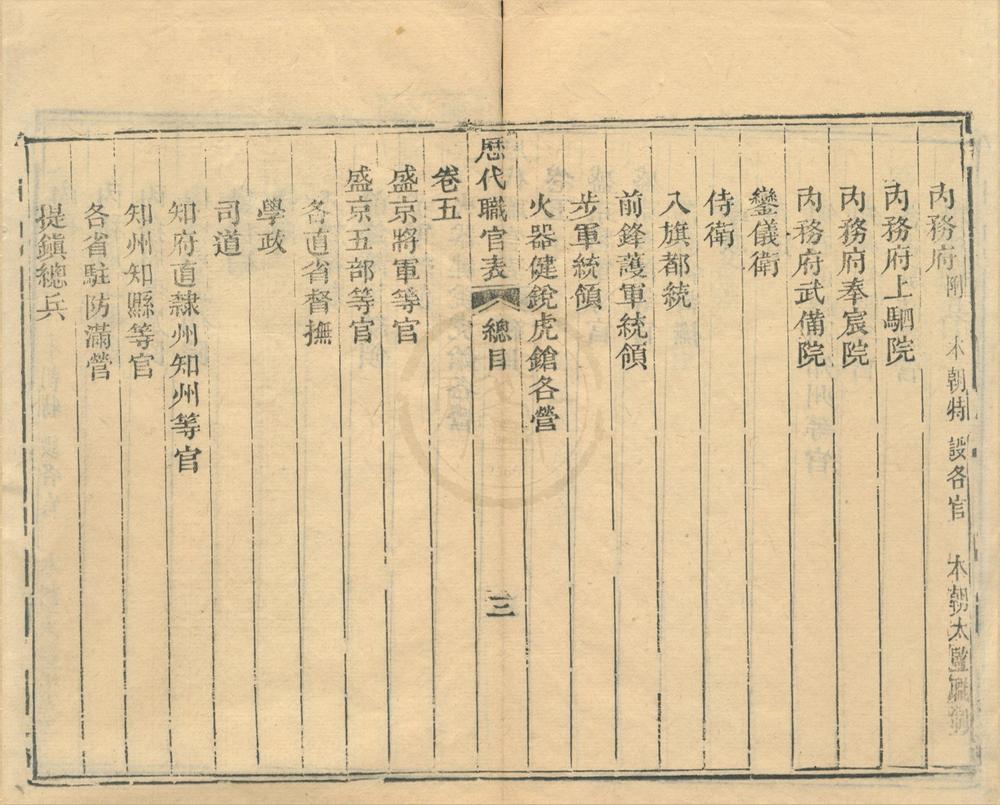 內務府附 本朝特設各官 本朝太監職制
內務府上駟院
內務府奉宸院
內務府武備院
鑾儀衛
侍衛
八旗都統
前鋒護軍統領
步軍統領
火器健銳虎鎗各營
歷代職官表 總目 三
卷五
盛京將軍等官
盛京五部等官
各直省督撫
學政
司道
知府直隸州知州等官
知州知縣等官
各省駐防滿營
提鎮總兵